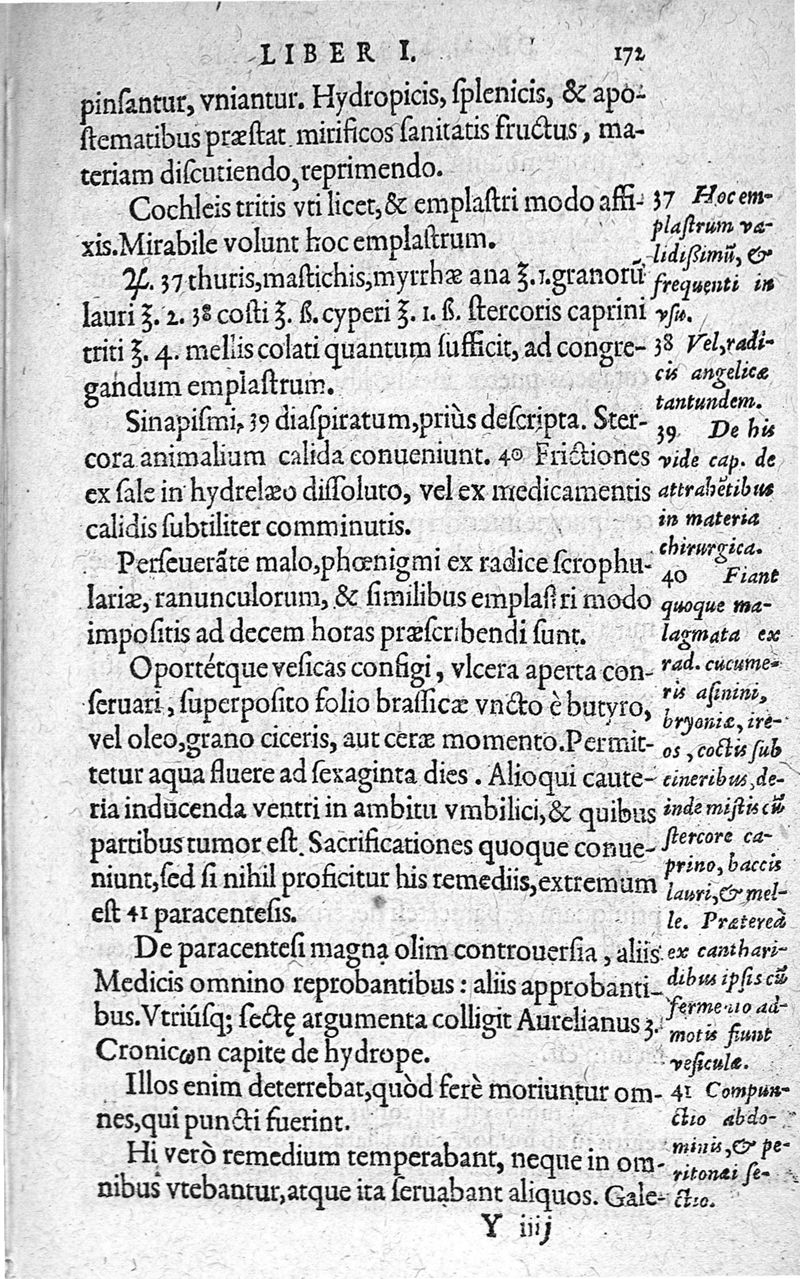 LIBER I. 172
pinſantur, vniantur. Hydropicis, ſplenicis, & apo-
ſtematibus præſtat mirificos ſanitatis fructus, ma-
teriam diſcutiendo, reprimendo.
Cochleis tritis vti licet, & emplaſtri modo affi-
xis. Mirabile volunt hoc emplaſtrum.
♃. 37 thuris, maſtichis, myrrhæ ana ʒ. 1. granorũ
lauri ʒ. 2. 38 coſti ʒ. ß. cyperi ʒ. 1. ß. ſtercoris caprini
triti ʒ. 4. mellis colati quantum ſufficit, ad congre-
gandum emplaſtrum.
Sinapiſmi, 39 diaſpiratum, priùs deſcripta. Ster-
cora animalium calida conueniunt. 40 Frictiones
ex ſale in hydrelæo diſſoluto, vel ex medicamentis
calidis ſubtiliter comminutis.
Perſeuerãte malo, phœnigmi ex radice ſcrophu-
lariæ, ranunculorum, & ſimilibus emplaſtri modo
impoſitis ad decem horas præſcribendi ſunt.
Oportétque veſicas configi, vlcera aperta con-
ſeruari, ſuperpoſito folio braſſicæ vncto è butyro,
vel oleo, grano ciceris, aut ceræ momento. Permit-
tetur aqua fluere ad ſexaginta dies. Alioqui caute-
ria inducenda ventri in ambitu vmbilici, & quibus
partibus tumor eſt. Sacrificationes quoque conue-
niunt, ſed ſi nihil proficitur his remediis, extremum
eſt 41 paracenteſis.
De paracenteſi magna olim controuerſia, aliis
Medicis omnino reprobantibus: aliis approbanti-
bus. Vtriúſq; ſectę argumenta colligit Aurelianus 3.
Cronicωn capite de hydrope.
Illos enim deterrebat, quòd ferè moriuntur om-
nes, qui puncti fuerint.
Hi verò remedium temperabant, neque in om-
nibus vtebantur, atque ita ſeruabant aliquos. Gale-
Y iiij
37 Hoc em-
plaſtrum va-
lidißimũ, &
frequenti in
vſu.
38 Vel, radi-
cis angelicæ
tantundem.
39 De his
vide cap. de
attrahẽtibus
in materia
chirurgica.
40 Fiant
quoque ma-
lagmata ex
rad. cucume-
ris aſinini,
bryoniæ, ire-
os, coctis ſub
cineribus, de-
inde miſtis cũ
ſtercore ca-
prino, baccis
lauri, & mel-
le. Prætereà
ex canthari-
dibus ipſis cũ
fermento ad-
motis fiunt
veſiculæ.
41 Compun-
ctio abdo-
minis, & pe-
ritonæi ſe-
ctio.